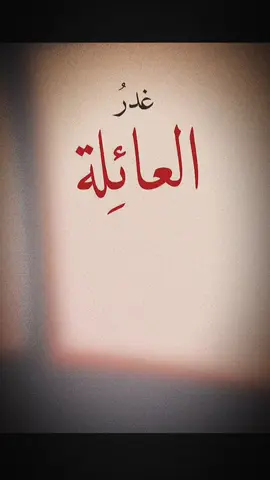 غدرُ
العائِلة